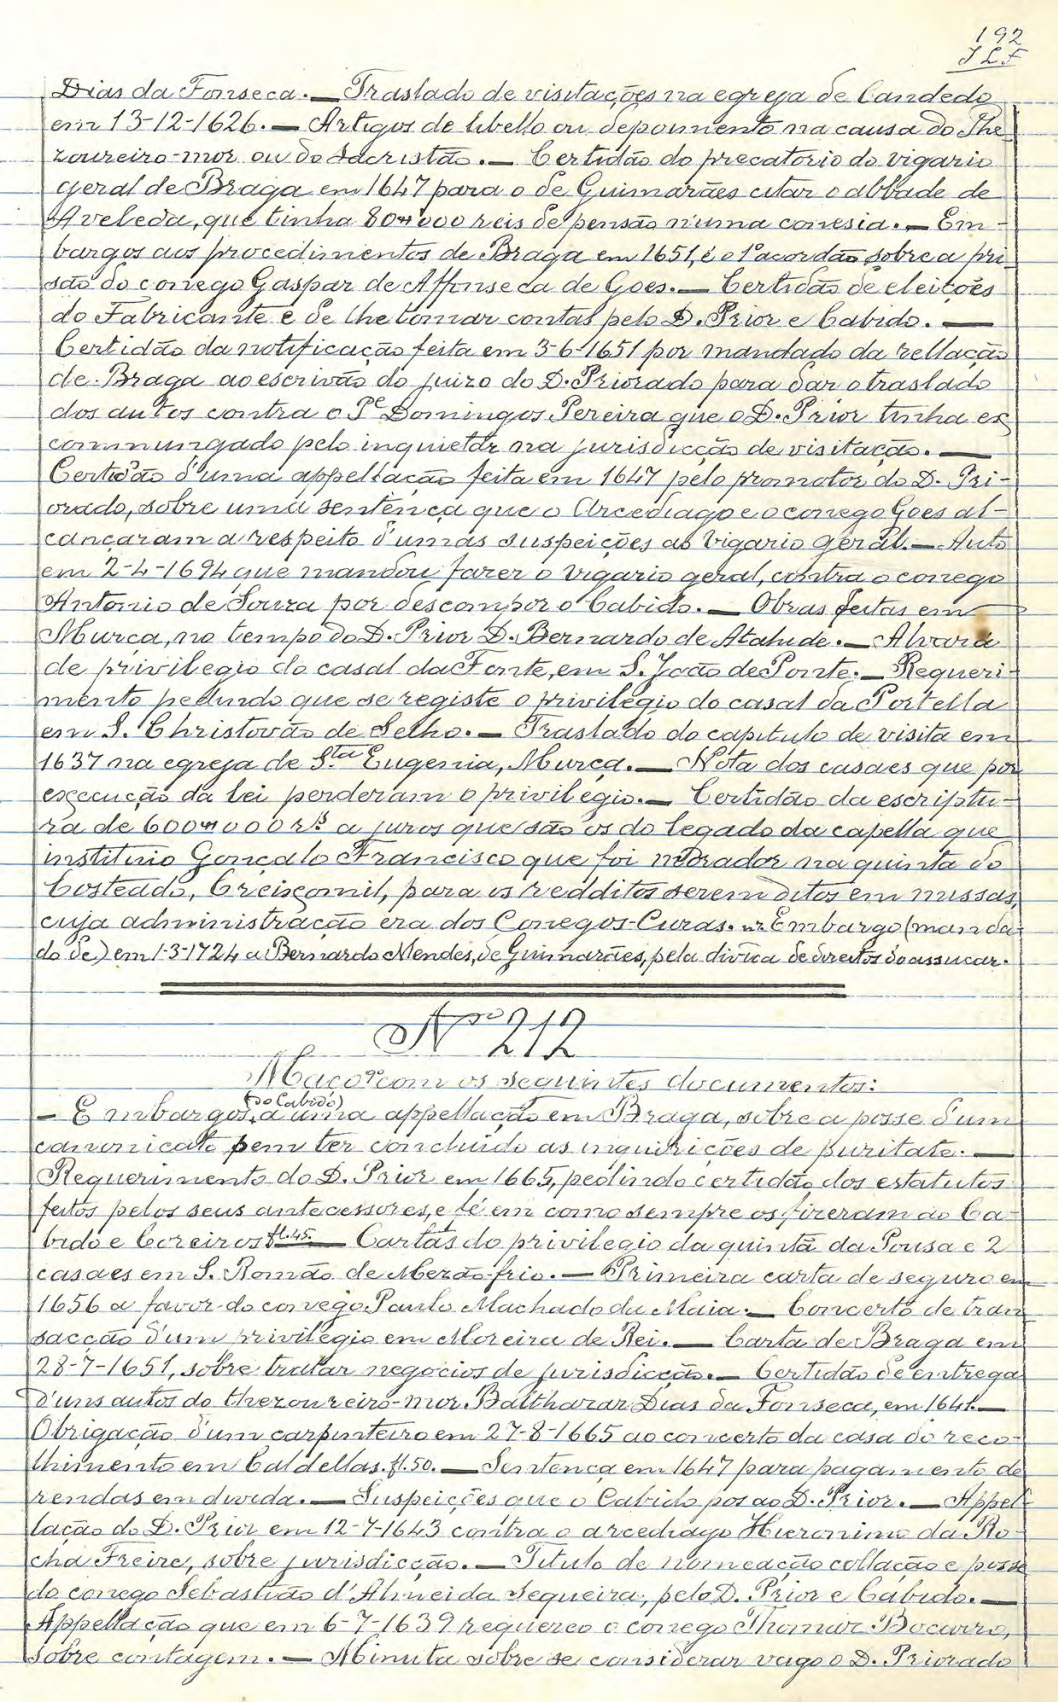 192
JLF
Dias da Fonseca. — Traslado de visitações na egreja de Candedo
em 13-12-1626. — Artigos de libello ou depoimento na causa do The-
zoureiro-mor ou do sacristão. — Certidão do precatorio do vigario
geral de Braga em 1647 para o de Guimarães citar o abbade de
Aveleda, que tinha 80$000 reis de pensão n'uma conesia. — Em-
bargos aos procedimentos de Braga em 1651, é o 1º acordão sobre a pri-
são do conego Gaspar de Affonseca de Goes. — Certidão de eleições
do Fabricante e de lhe tomar contas pelo D. Prior e Cabido. —
Certidão da notificação feita em 3-6-1651 por mandado da rellação
de Braga ao escrivão do juizo do D. Priorado para dar o traslado
dos autos contra o Pe Domingos Pereira que o D. Prior tinha ex
commungado pelo inquietar na jurisdicção de visitação. —
Certidão d'uma appellação feita em 1647 pelo promotor do D. Pri-
orado, sobre uma sentença que o Arcediago e o conego Goes al-
cançaram a respeito d'umas suspeições ao Vigario geral. — Auto
em 2-4-1694 que mandou fazer o vigario geral, contra o conego
Antonio de Souza por descompor o Cabido. — Obras feitas em
Murça, no tempo do D. Prior D. Bernardo de Atahide. — Alvará
de privilegio do casal da Fonte, em S. João de Ponte. — Requeri-
mento pedindo que se registe o privilegio do casal da Portella
em S. Christovão de Selho. — Traslado do capitulo de visita em
1637 na egreja de Sta Eugenia, Murça. — Nota dos casaes que por
execução da lei perderam o privilegio. — Certidão da escriptu-
ra de 600$000 rs a juros que são os do legado da capella que
instituio Gonçalo Francisco que foi morador na quinta do
Costeado, Creixomil, para os redditos serem ditos em missas,
cuja administração era dos Conegos-Curas. — Embargo (manda-
do de) em 1-3-1724 a Bernardo Mendes, de Guimarães, pela divida de direitos do assucar.
Nº 212
Maço com os seguintes documentos:
— Embargos (do Cabido) a uma appellação em Braga, sobre a posse d'um
canonicato sem ter concluido as inquirições de puritate. —
Requerimento do D. Prior em 1665, pedindo certidão dos estatutos
feitos pelos seus antecessores, e fé em como sempre os fizeram ao Ca-
bido e Coreiros fl. 45. — Cartas do privilegio da quintã da Pousa e 2
casaes em S. Romão de Mezão-frio. — Primeira carta de seguro em
1656 a favor do conego Paulo Machado da Maia. — Concerto de tran-
sacção d'um privilegio em Moreira de Rei. — Carta de Braga em
28-7-1651, sobre tratar negocios de jurisdicção. — Certidão de entrega
d'uns autos do thezoureiro-mor Balthazar Dias da Fonseca, em 1641. —
Obrigação d'um carpinteiro em 27-8-1665 ao concerto da casa do reco-
lhimento em Caldellas. fl. 50. — Sentença em 1647 para pagamento de
rendas em divida. — Suspeições que o Cabido pos ao D. Prior. — Appel-
lação do D. Prior em 12-7-1643 contra o arcediago Hieronimo da Ro-
cha Freire, sobre jurisdicção. — Titulo de nomeação collação e posse
do conego Sebastião d'Almeida Sequeira, pelo D. Prior e Cabido. —
Appellação que em 6-7-1639 requereo o conego Thomaz Bocarro,
sobre contagem. — Minuta sobre se considerar vago o D. Priorado